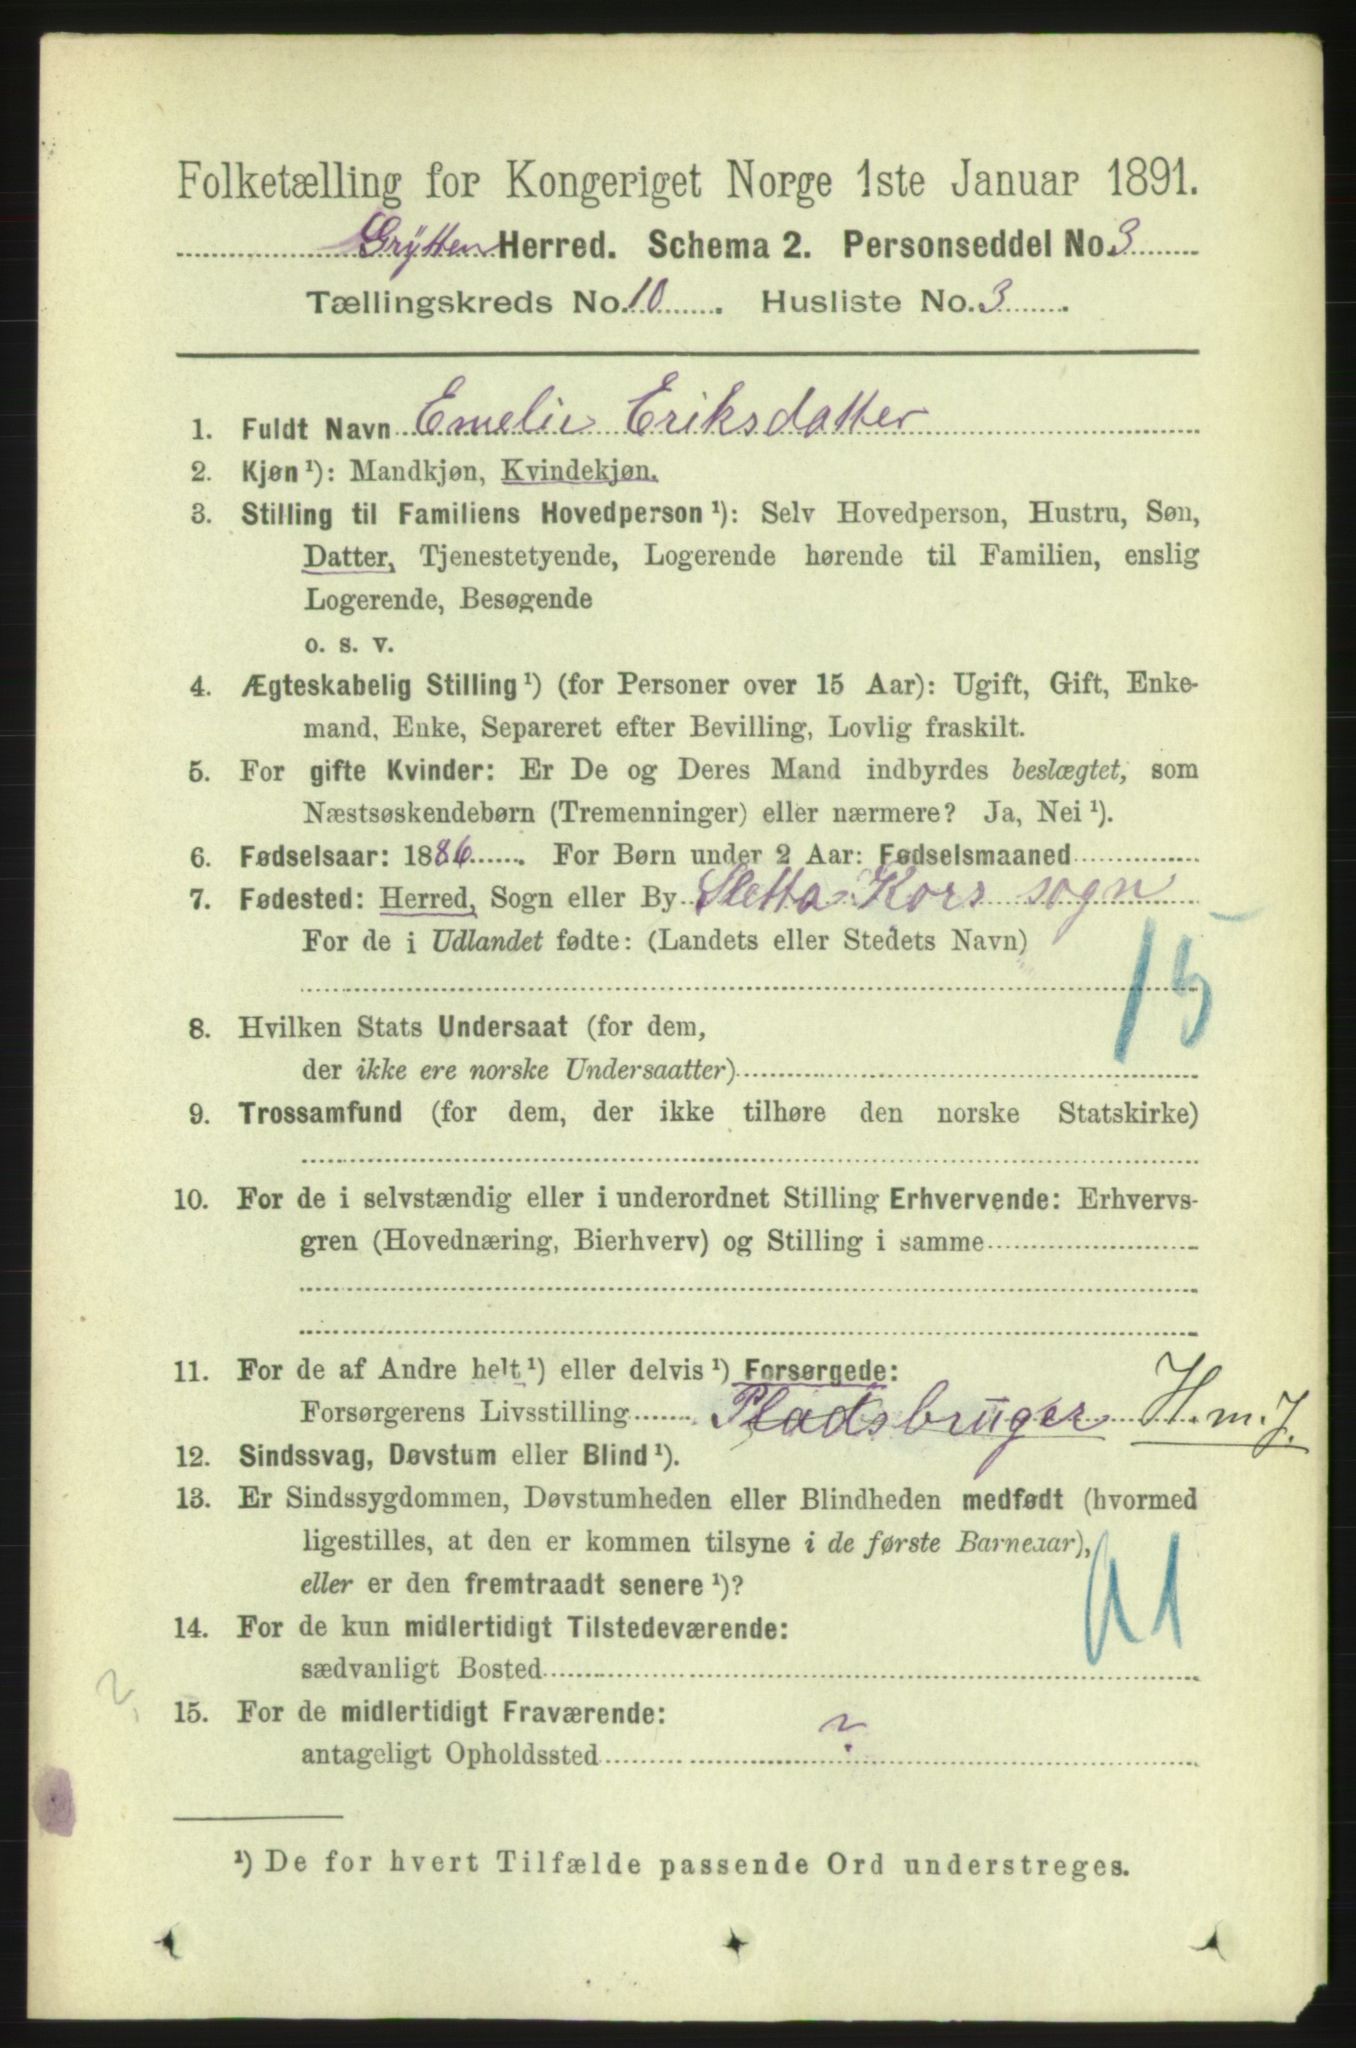 Folketælling for Kongeriget Norge 1ste Januar 1891.
Grytten Herred. Schema 2. Personseddel No. 3
Tællingskreds No. 10. Husliste No. 3.
1. Fuldt Navn Emelie Eriksdatter
2. Kjøn ¹): Mandkjøn, Kvindekjøn.
3. Stilling til Familiens Hovedperson ¹): Selv Hovedperson, Hustru, Søn,
Datter, Tjenestetyende, Logerende hørende til Familien, enslig
Logerende, Besøgende
o. s. v.
4. Ægteskabelig Stilling ¹) (for Personer over 15 Aar): Ugift, Gift, Enke-
mand, Enke, Separeret efter Bevilling, Lovlig fraskilt.
5. For gifte Kvinder: Er De og Deres Mand indbyrdes beslægtet, som
Næstsøskendebørn (Tremenninger) eller nærmere? Ja, Nei ¹).
6. Fødselsaar: 1886. For Børn under 2 Aar: Fødselsmaaned
7. Fødested: Herred, Sogn eller By Sletta Kors sogn
For de i Udlandet fødte: (Landets eller Stedets Navn)
15
8. Hvilken Stats Undersaat (for dem,
der ikke ere norske Undersaatter)
9. Trossamfund (for dem, der ikke tilhøre den norske Statskirke)
10. For de i selvstændig eller i underordnet Stilling Erhvervende: Erhvervs-
gren (Hovednæring, Bierhverv) og Stilling i samme
11. For de af Andre helt ¹) eller delvis ¹) Forsørgede:
Forsørgerens Livsstilling Pladsbruger H. m. J.
12. Sindssvag, Døvstum eller Blind ¹).
13. Er Sindssygdommen, Døvstumheden eller Blindheden medfødt (hvormed
ligestilles, at den er kommen tilsyne i de første Barneaar),
eller er den fremtraadt senere ¹)?
14. For de kun midlertidigt Tilstedeværende:
sædvanligt Bosted
15. For de midlertidigt Fraværende:
antageligt Opholdssted ?
¹) De for hvert Tilfælde passende Ord understreges.